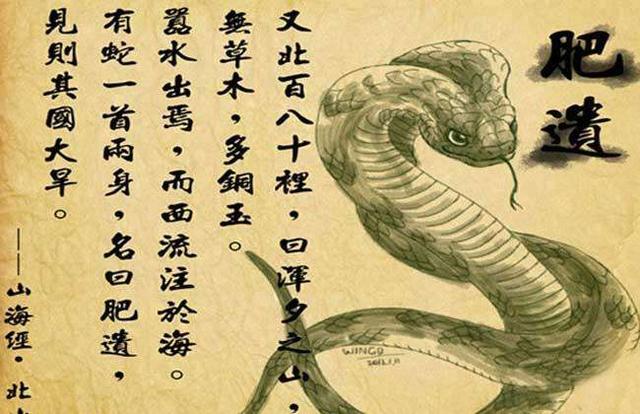 肥遺
又北百八十裡，曰渾夕之山，
無草木，多銅玉。
囂水出焉，而西流注於海。
有蛇一首兩身，名曰肥遺，
見則其國大旱。
——山海經·北
WING9